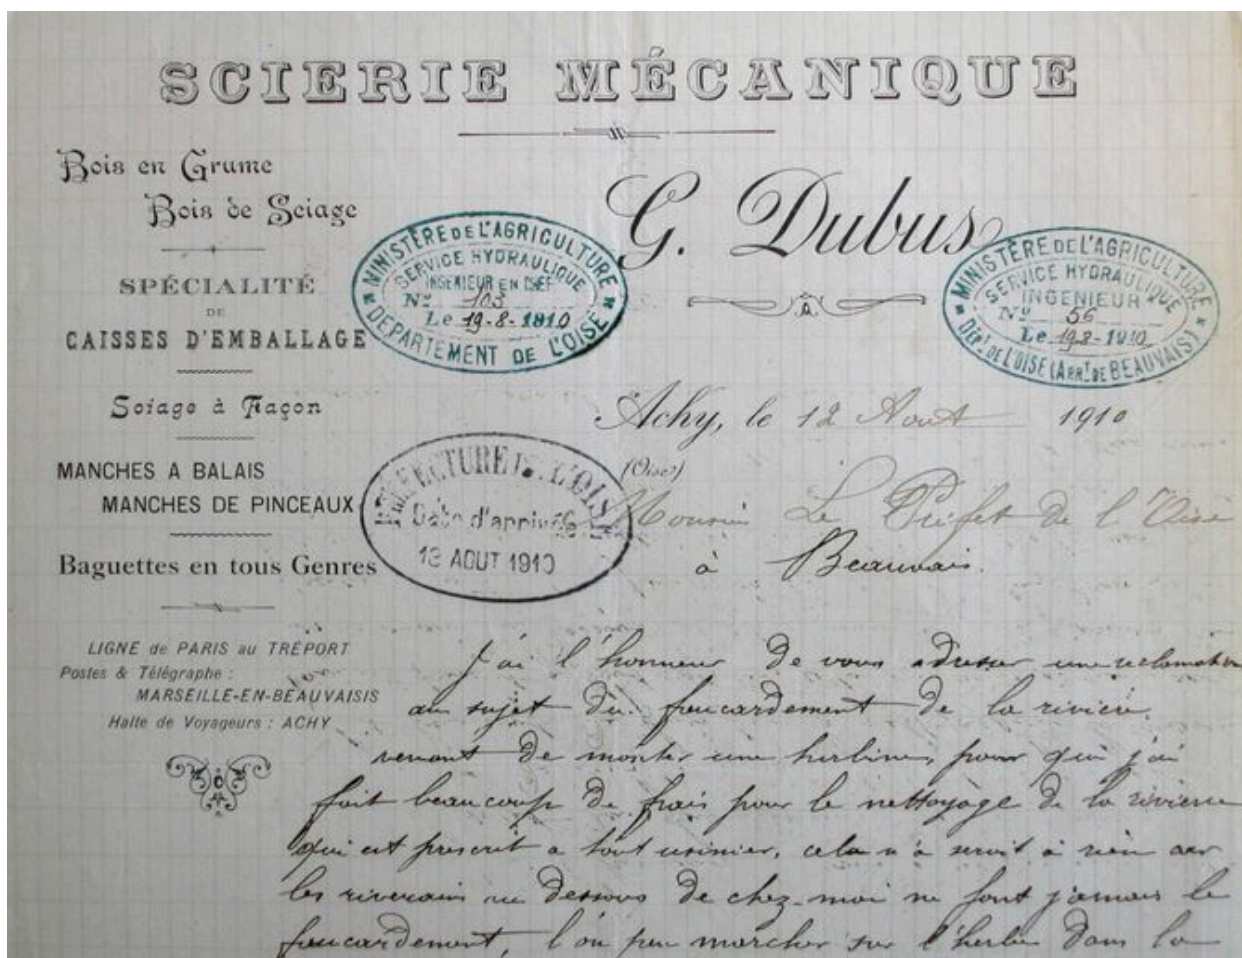 SCIERIE MÉCANIQUE
Bois en Grume
Bois de Sciage
SPÉCIALITÉ
DE
CAISSES D'EMBALLAGE
Sciage à Façon
MANCHES A BALAIS
MANCHES DE PINCEAUX
Baguettes en tous Genres
LIGNE de PARIS au TRÉPORT
Postes & Télégraphe :
MARSEILLE-EN-BEAUVAISIS
Halte de Voyageurs : ACHY
G. Dubus
MINISTÈRE DE L'AGRICULTURE
SERVICE HYDRAULIQUE
INGÉNIEUR EN CHEF
No 103
Le 19-8-1910
DÉPARTEMENT DE L'OISE
MINISTÈRE DE L'AGRICULTURE
SERVICE HYDRAULIQUE
INGÉNIEUR
No 56
Le 19-8-1910
DÉPt DE L'OISE (ARRt DE BEAUVAIS)
Achy, le 12 Aout 1910
(Oise)
PRÉFECTURE DE L'OISE
Date d'arrivée
13 AOUT 1910
Monsieur Le Préfet de l'Oise
à Beauvais.
J'ai l'honneur de vous adresser une reclamation
au sujet du foucardement de la rivière.
venant de monter une turbine, pour qui j'ai
fait beaucoup de frais pour le nettoyage de la riviere
qui est prescrit a tout usinier, cela n'a servit à rien car
les riverains au dessous de chez-moi ne font jamais le
foucardement, l'on peu marcher sur l'herbe dans la